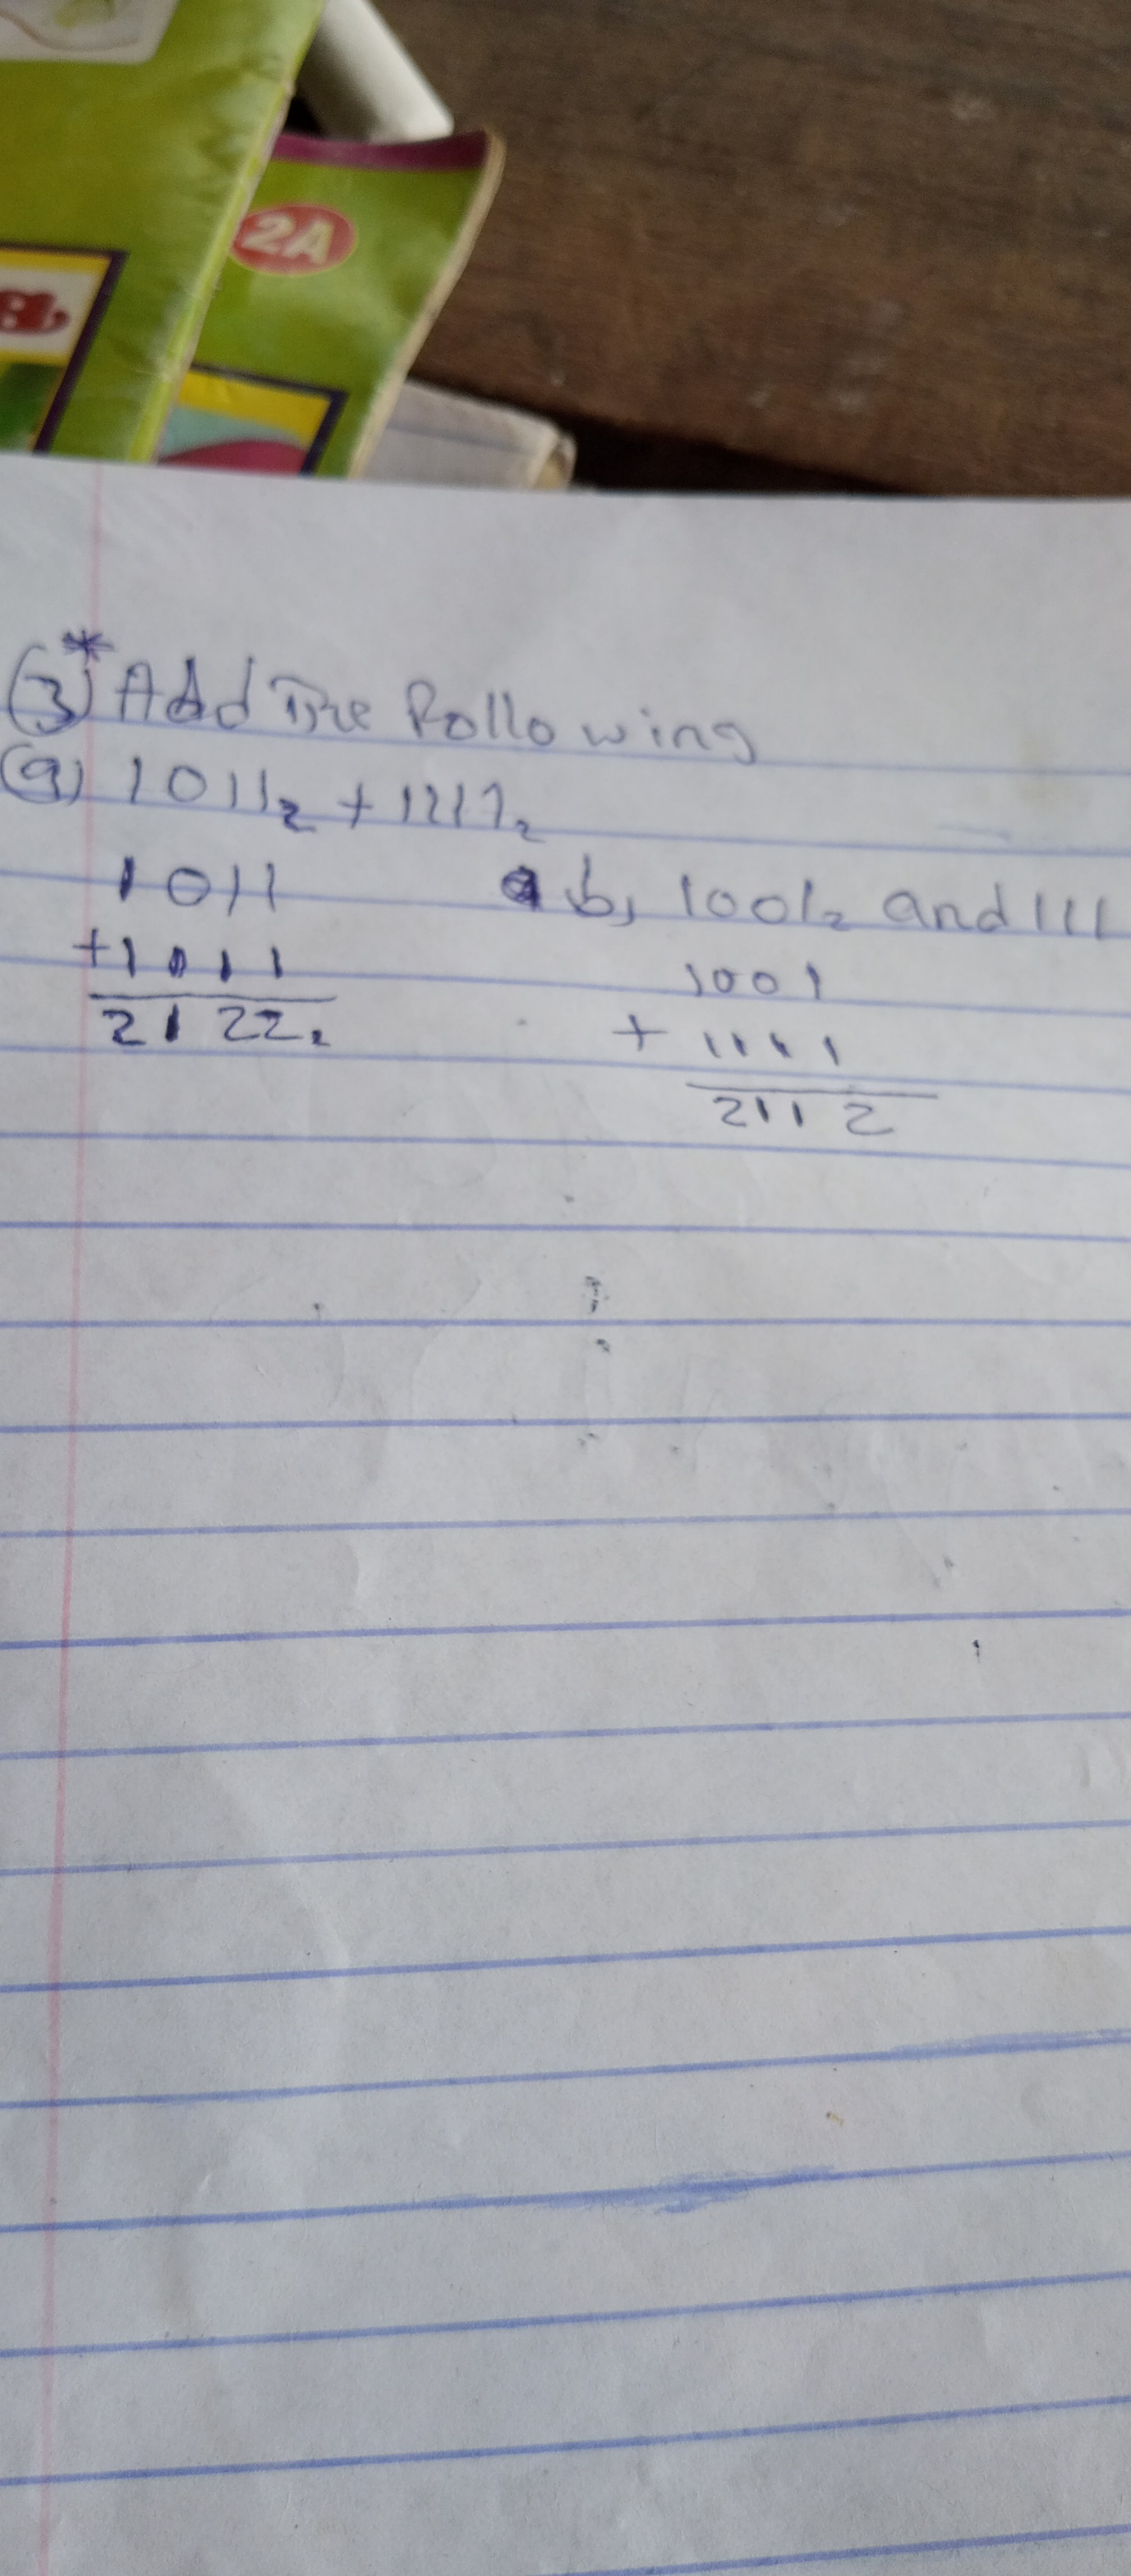 2A
(3)* Add The following
(a) 1011₂ + 1111₂
1011
+1011
2122₂
b, 1001₂ and 111
1001
+ 1111
2112